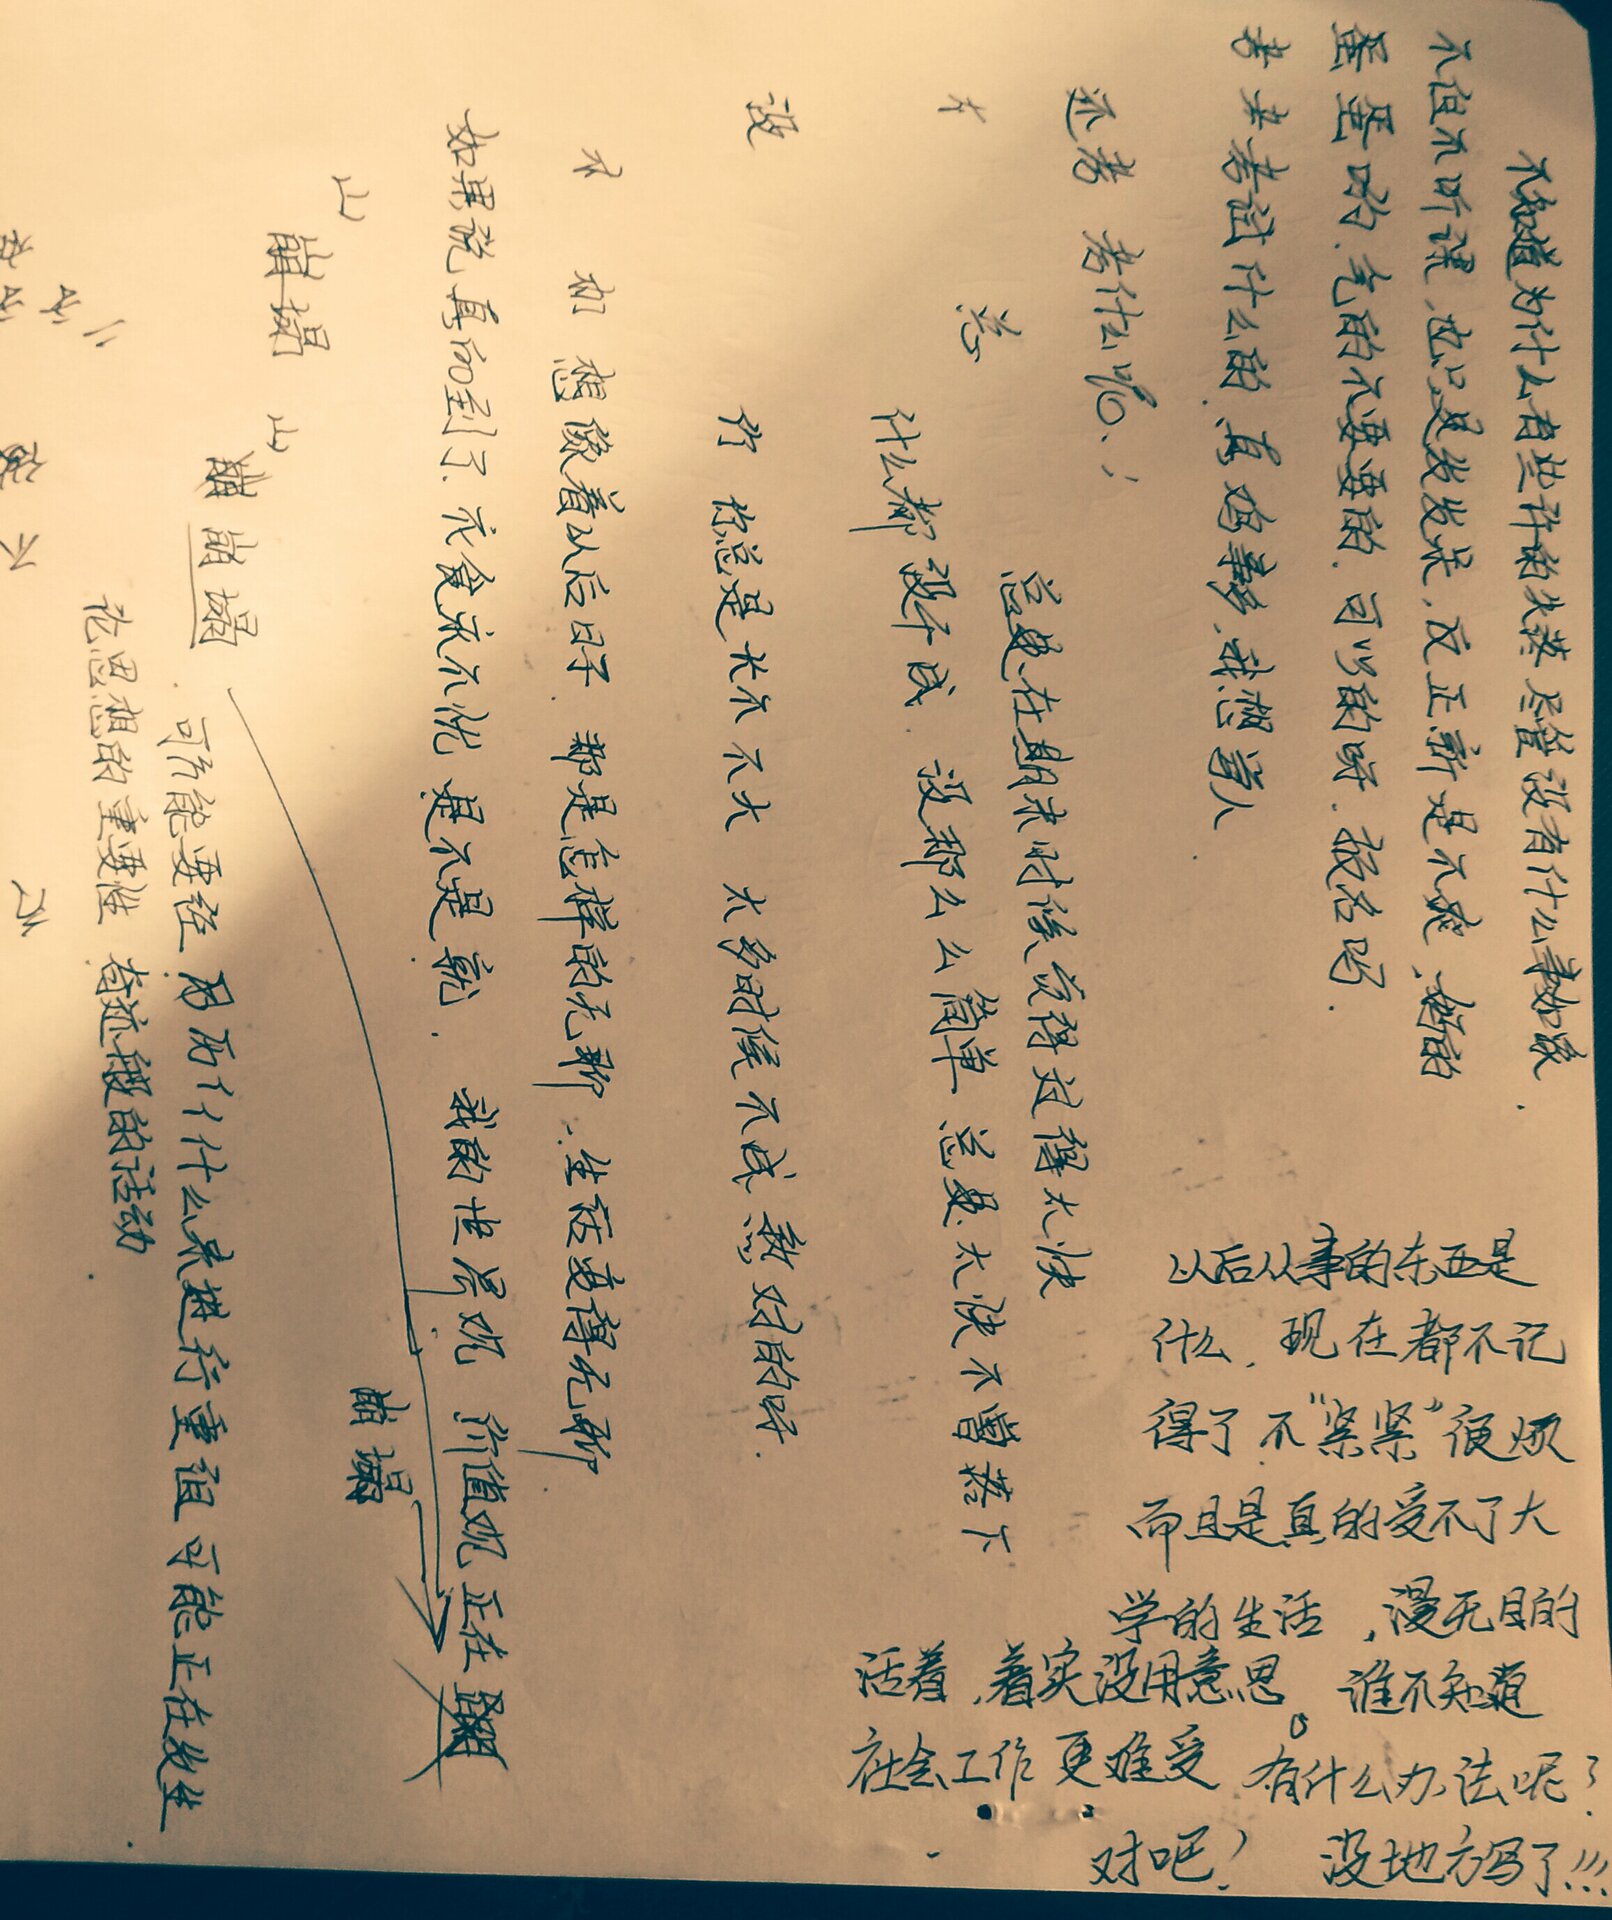 不知道为什么有些许的失落 尽管没有什么事如故.
不但不听课,也只是发发呆,反正新是不爽,
蛋蛋的.气的不要要的.可以的呀.报名吗.
考考考试什么的.真鸡毒多.我想 骂人
还考 考什么呢、;
总
总是在期末时候觉得过得太快
什么都 没干成 没那么么简单 总是太快不 落下
没
你总是长不不大 太多时候不成熟对的呀.
不 想像着以后日子.都是怎样的无聊.生活变得无聊
如果说真的到了.衣食不忧 是不是就. 我的世界观 价值观正在
山 崩塌
山 崩 崩塌
崩塌
可能要经 历什么来进行重组 可能正在发生.
论思想的重要性 奇迹般的活动.
以后从事的东西是
什么.现在都不记
得了.不"紧紧"很烦
而且是真的受不了大
学的生活,漫无目的
活着,着实没用意思。谁不知道
社会工作更难受 有什么办法呢?
对吧! 没地方写了!!!